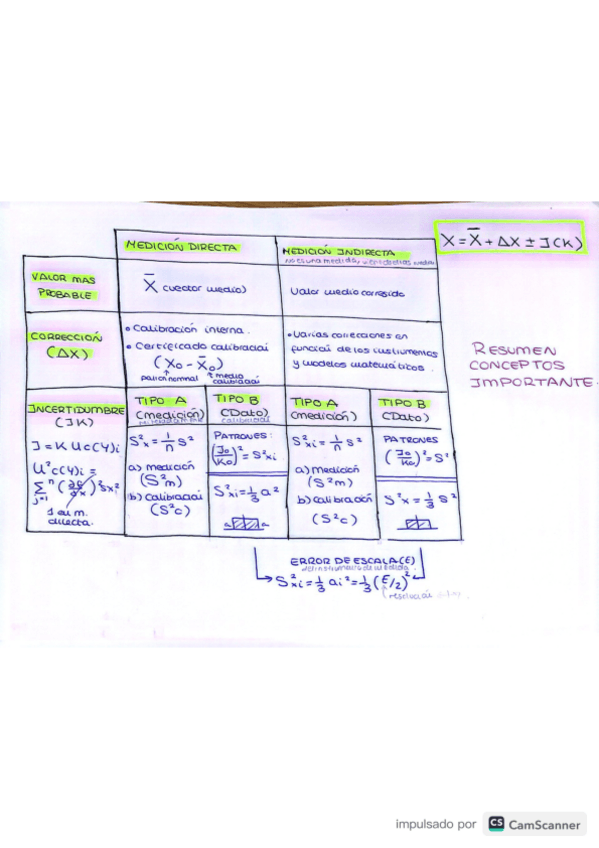 X = X̄ + ΔX ± I(K)
MEDICIÓN DIRECTA
MEDICIÓN INDIRECTA
VALOR MAS PROBABLE
X̄ (vector medio)
Valor medio corregido
CORRECCIÓN (ΔX)
• Calibración interna.
• Certificado calibración
(X₀ - X̄₀)
patrón normal
medio calibración
• Varias correcciones en
función de los instrumentos
y modelos matemáticos.
RESUMEN
CONCEPTOS
IMPORTANTE.
INCERTIDUMBRE
(IK)
I = K Uc(Y)i
U²c(Y)i =
Σⁿ j=1 (∂f/∂x)² Sx²
1 en m.
directa.
TIPO A
(medición)
S²x = 1/n S²
a) medición
(S²m)
b) calibración
(S²c)
TIPO B
(Dato)
PATRONES:
(I₀/K₀)² = S²xi
S²xi = 1/3 a²
-a a
TIPO A
(medición)
S²xi = 1/n S²
a) medición
(S²m)
b) calibración
(S²c)
TIPO B
(Dato)
PATRONES
(I₀/K₀)² = S²
S²x = 1/3 S²
ERROR DE ESCALA (E)
S²xi = 1/3 ai² = 1/3 (E/2)²
resolución
impulsado por CS CamScanner